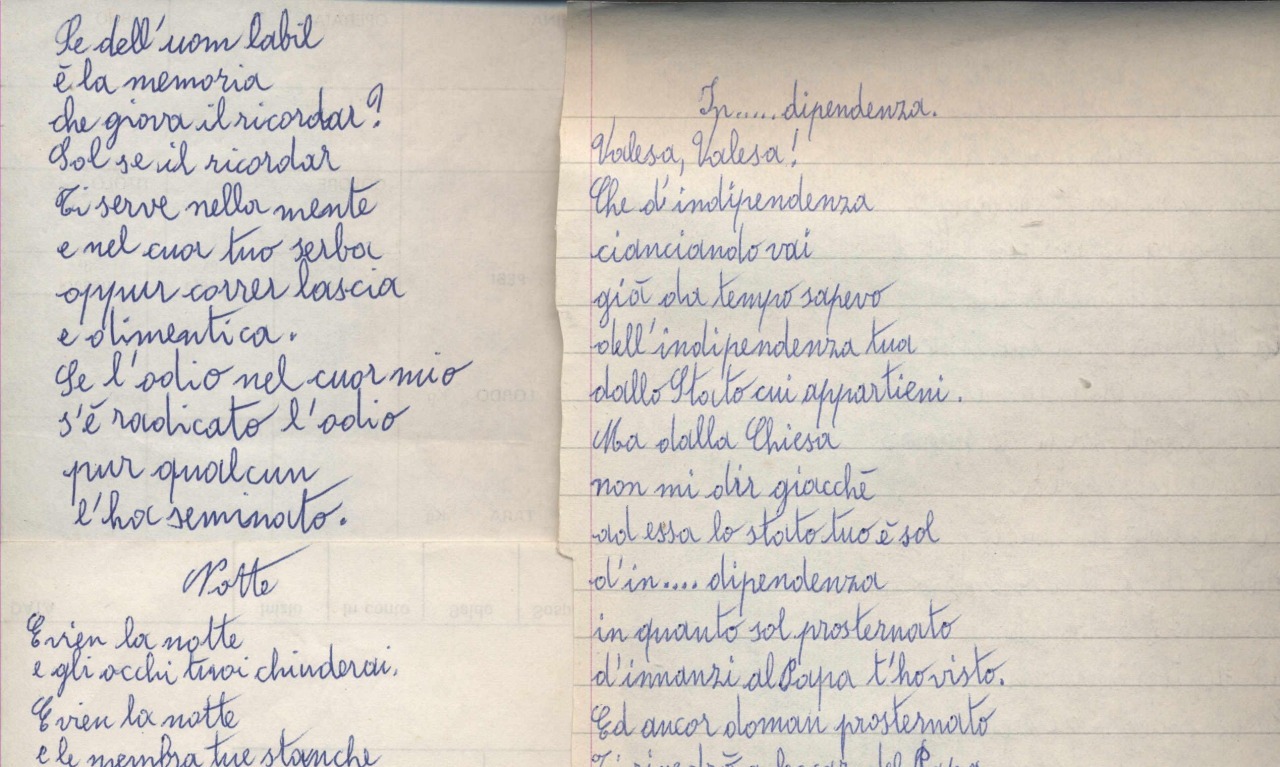 Se dell'uom labil
è la memoria
che giova il ricordar?
Sol se il ricordar
Ti serve nella mente
e nel cuor tuo serba
oppur correr lascia
e dimentica.
Se l'odio nel cuor mio
s'è radicato l'odio
pur qualcun
l'ha seminato.
Notte
E vien la notte
e gli occhi tuoi chiuderai.
E vien la notte
e le membra tue stanche
In..... dipendenza.
Valesa, Valesa!
Che d'indipendenza
cianciando vai
già da tempo sapevo
dell'indipendenza tua
dallo Stato cui appartieni.
Ma dalla Chiesa
non mi dir giacchè
ad essa lo stato tuo è sol
d'in.... dipendenza
in quanto sol prosternato
d'innanzi al Papa t'ho visto.
Ed ancor doman prosternato
Ti rivedrò a baciar del Papa